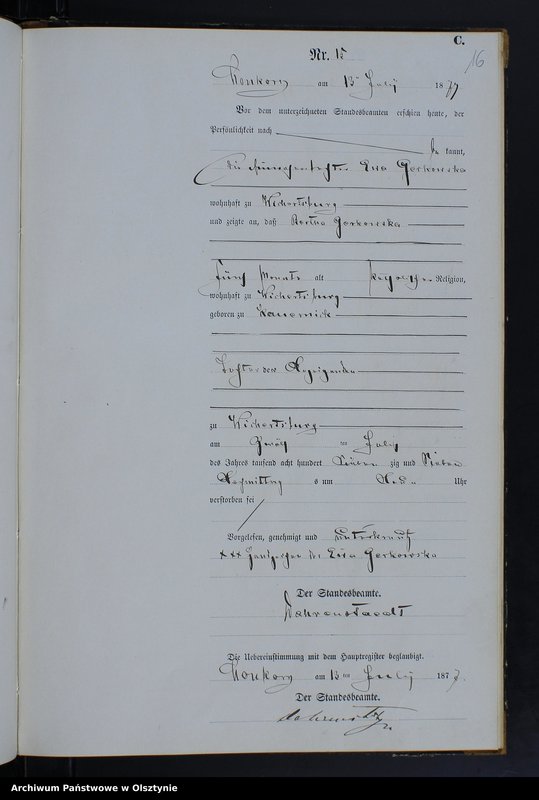 C.
16
Nr. 15
am 13 July 1877
Vor dem unterzeichneten Standesbeamten erschien heute, der
Persönlichkeit nach
kannt,
die Eva Gorkowska
wohnhaft zu Wichertsburg
und zeigte an, daß Gorkowska
fünf Monate alt Religion,
wohnhaft zu Wichertsburg
geboren zu
Tochter der
zu Wichertsburg
am July
des Jahres tausend acht hundert sieben zig und sieben
Nachmittag s um Uhr
verstorben sei
Vorgelesen, genehmigt und unterkreuzt
+++ Handzeichen der Eva Gorkowska
Der Standesbeamte.
Die Uebereinstimmung mit dem Hauptregister beglaubigt.
am 13 ten July 1877.
Der Standesbeamte.
Archiwum Państwowe w Olsztynie